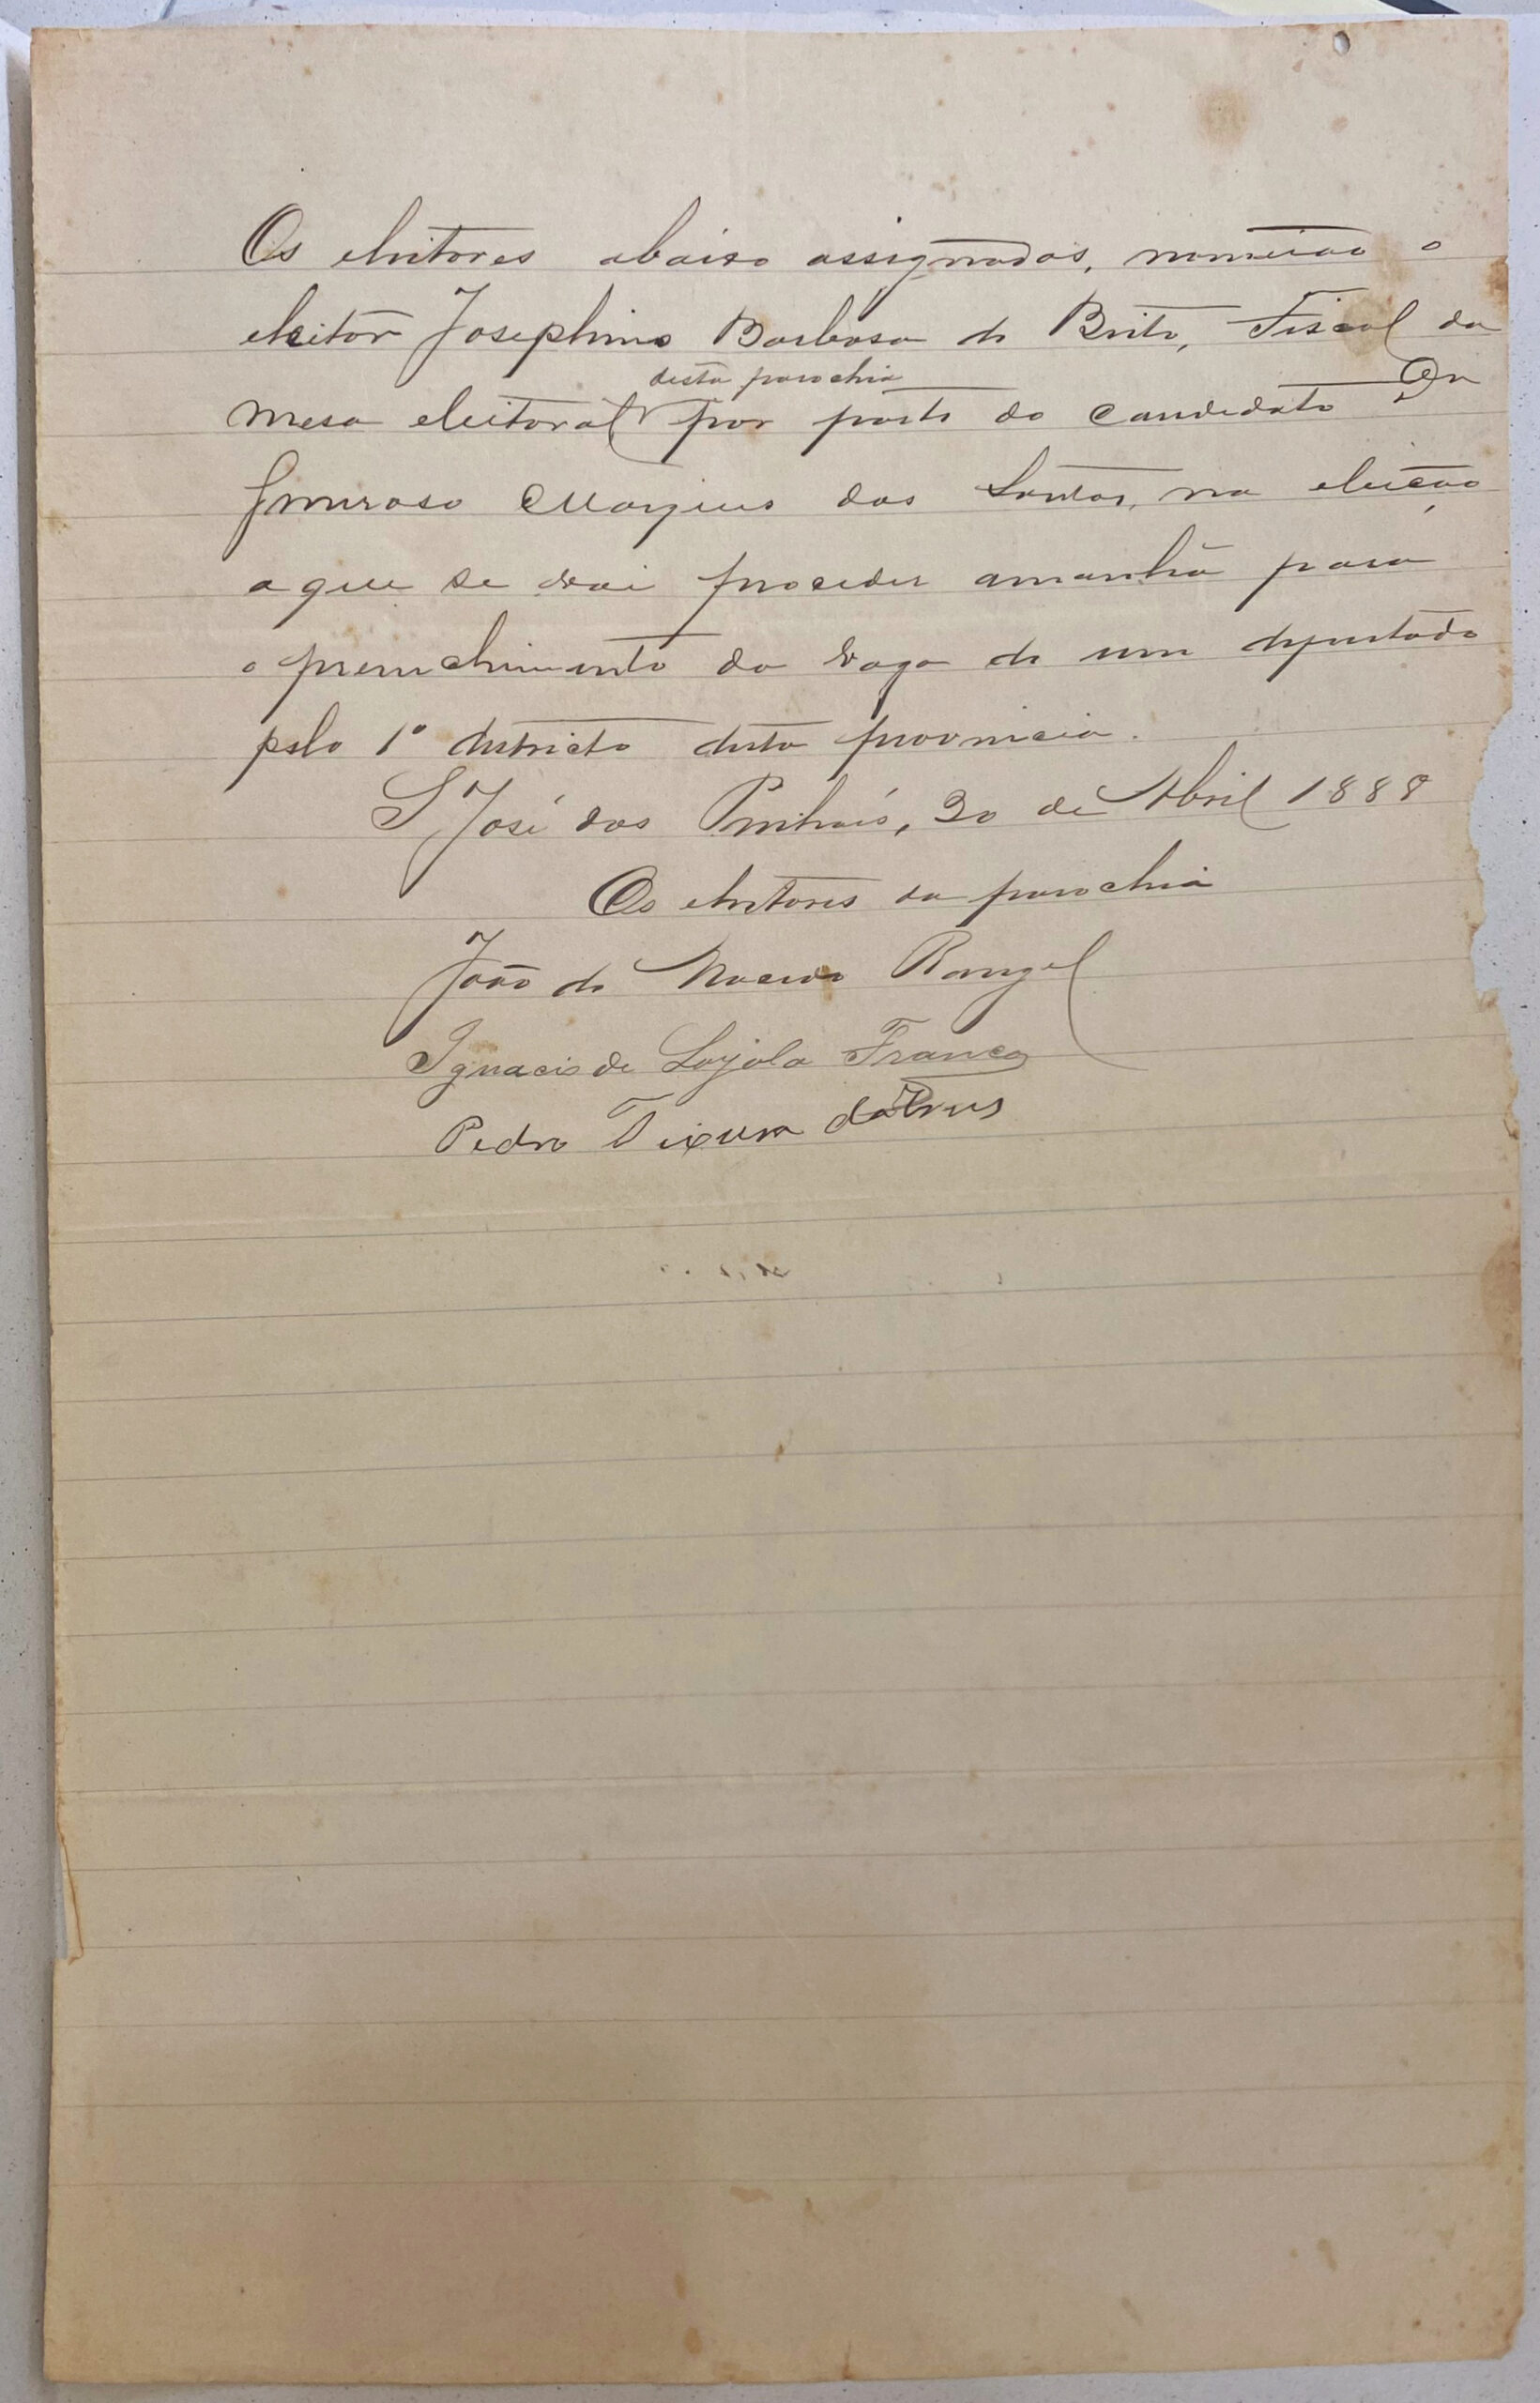 Os eleitores abaixo assignados, nomeião o
eleitor Josephino Barbosa de Brito, Fiscal da
desta parochia
mesa eleitoral por parte do candidato Dr
Generoso Marques dos Santos, na eleição
a que se vai proceder amanhã para
o preenchimento da vaga de um deputado
pelo 1º districto desta provincia.
S José dos Pinhais, de Abril 1888
Os eleitores da parochia
João de Rangel
Ignacio de Loyola Franco
Pedro Teixeira da